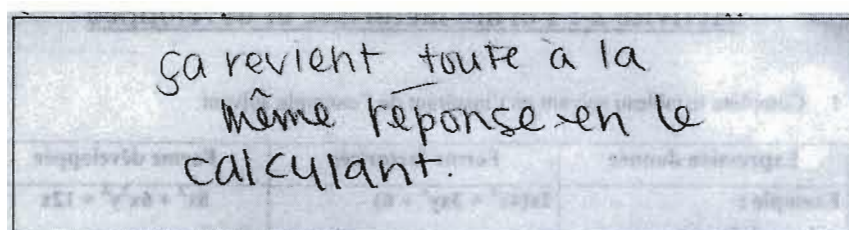 ça revient toute à la
même réponse en le
calculant.